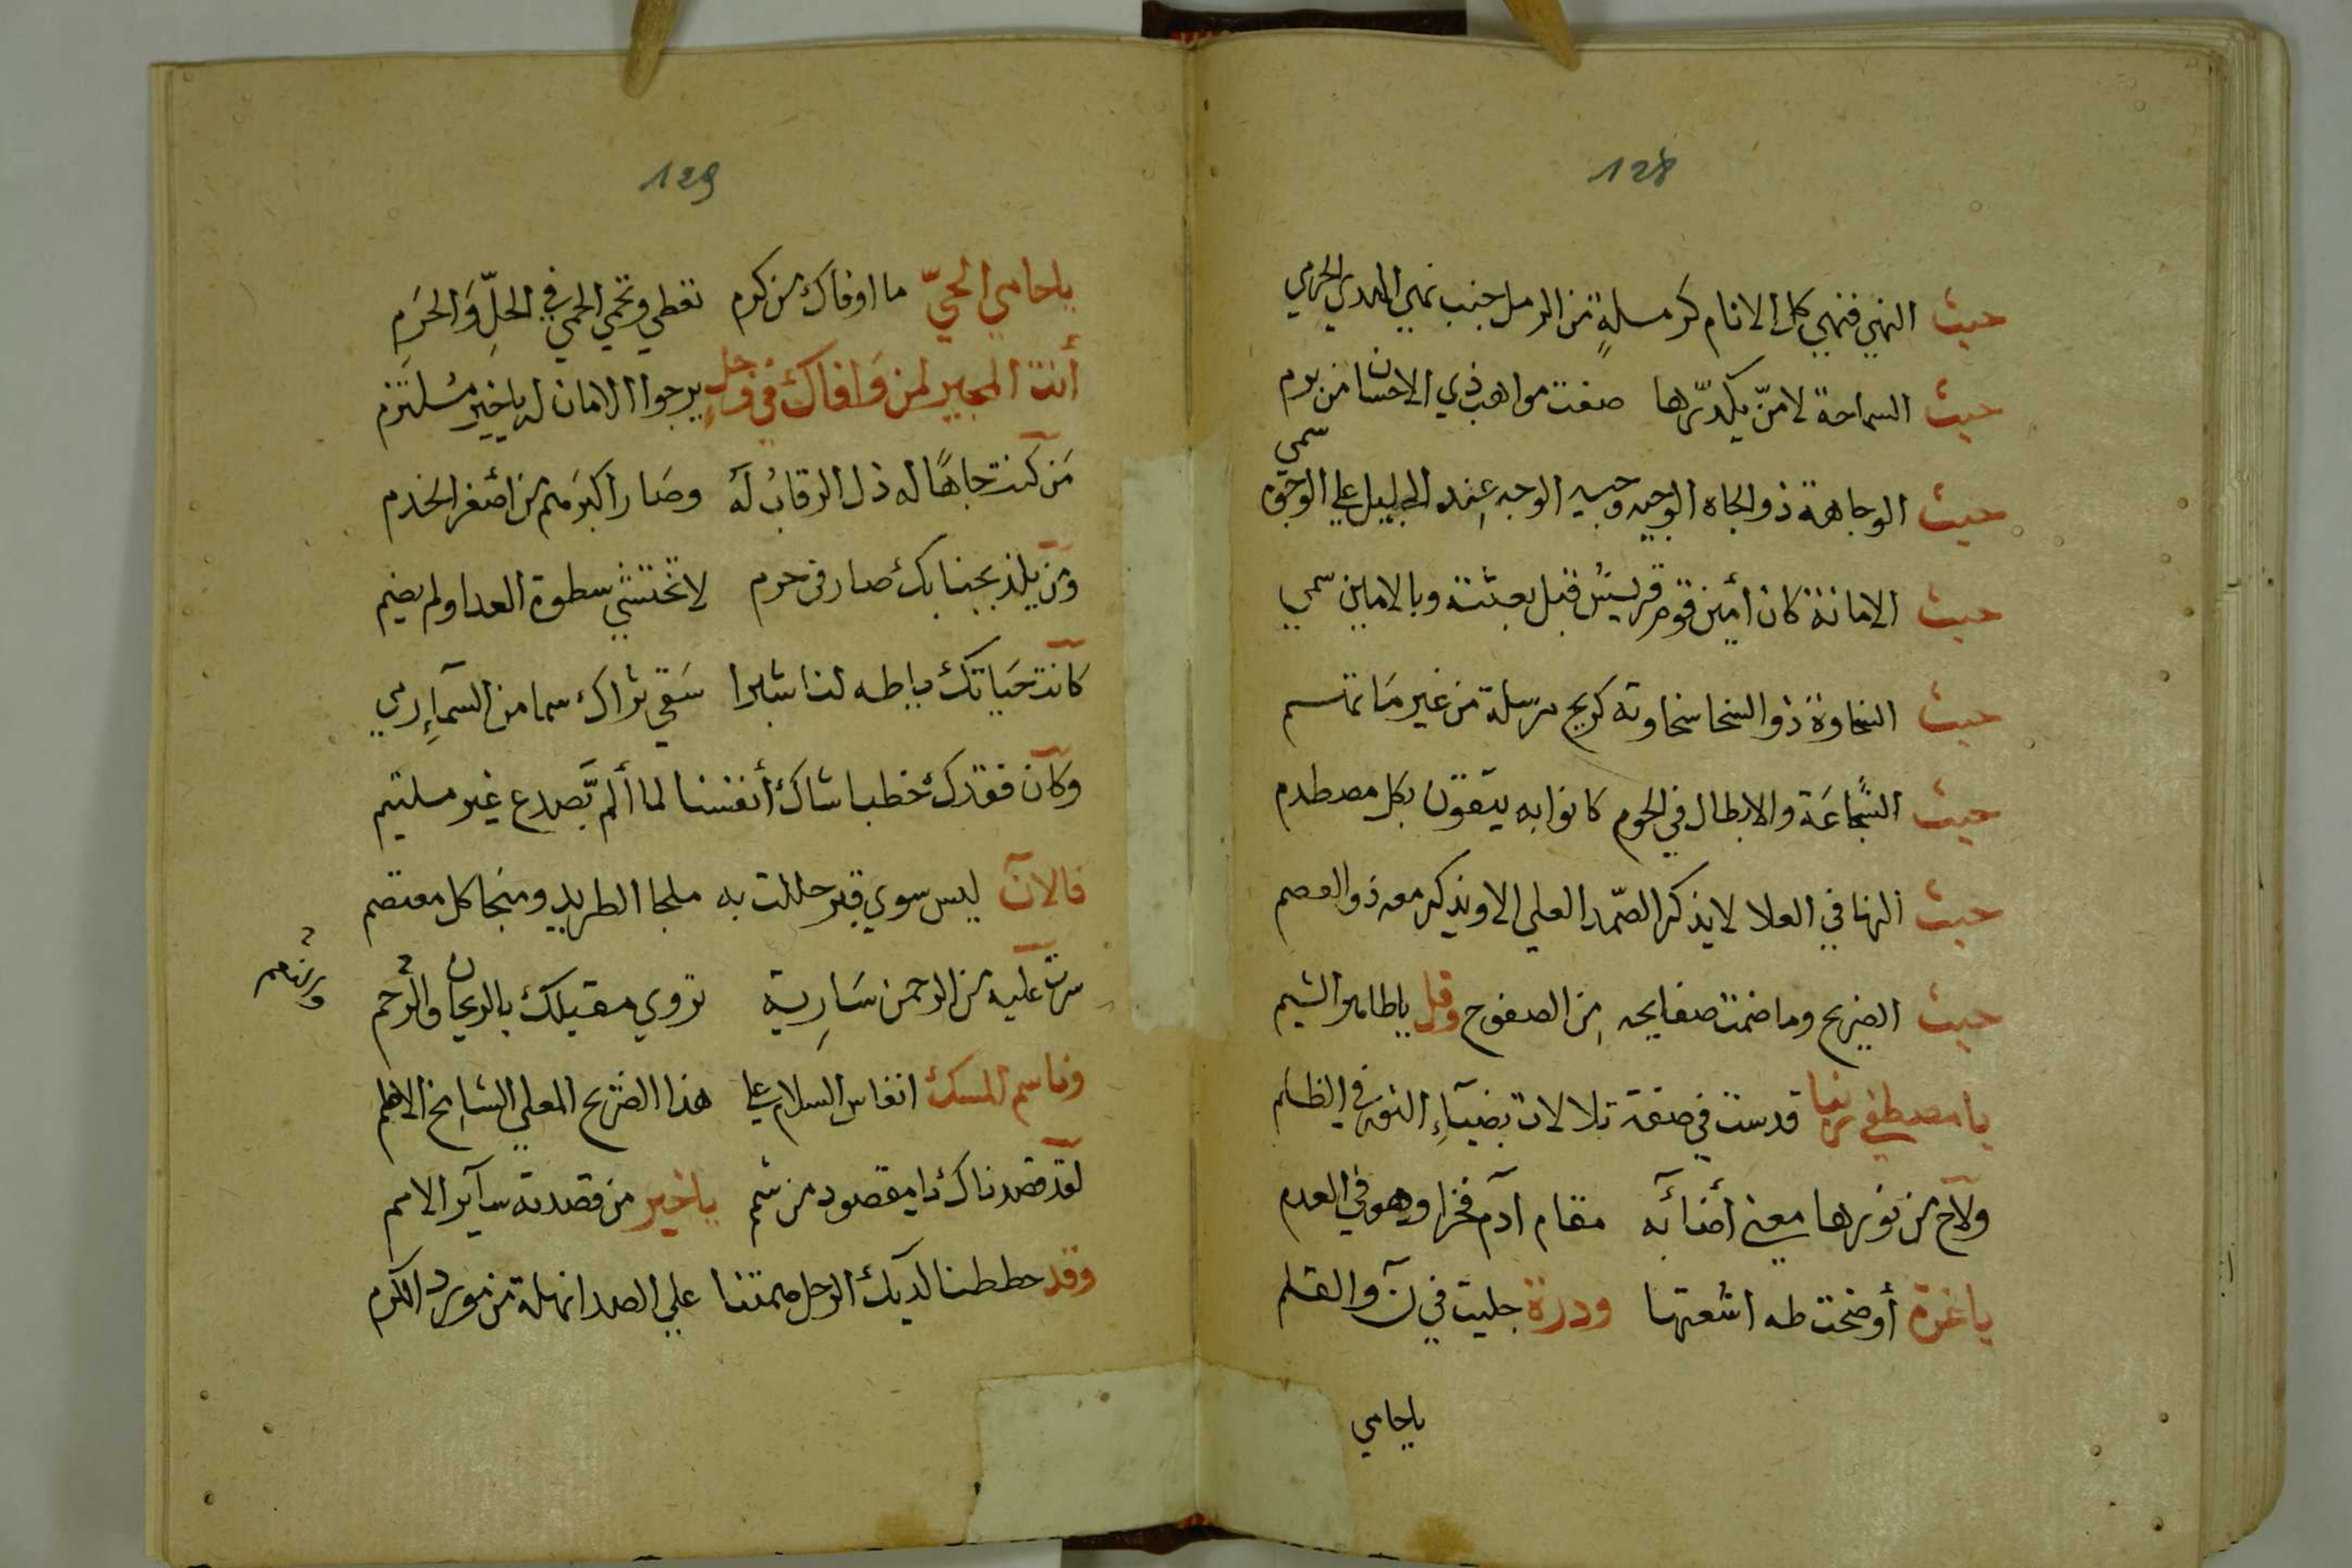 128
حيث النهى فنهى كل الانام كرمسلةٍ من الرمل جنب نهى الهدي الحرمي
حيث السماحة لا منّ يكدّرها صفت مواهب ذي الاحسان من برم
حيث الوجاهة ذو الجاه الوجيه وجيه الوجه عِند الجليل علي
حيث الامانة كان أمين قوم قريش قبل بعثته وبالامين سمي
حيث السخاوة ذو السخا سخاوته كريح مرسلة من غير
حيث الشَّجاعَة والابطال في الحوم كانوا به يتقون بكل مصطدم
حيث النها في العلا لا يذكر الصّمد العلي الا ويذكر معه ذو العصم
حيث الضريح وما ضمنت صفايحه مِن الصفوح وقل يا طاهر الشيم
يا مصطفى قدست في صفة تلالات بضيآءِ النور في الظلم
ولاح من نورها معنى أضآئه مقام آدم فخرا وهو في العدم
يا غرة أوضحت طه اشعتها ودرة جليت في نٓ والقلم
ياحامي
129
ياحامي الحيّ ما اوفاك من كرم تعطي وتحمي الحمي في الحلِّ وَالحَرَمِ
أنت المجير لمن وَافاك في وجل يرجوا الامان له ياخير مُلتزم
مَن كنت جاهًا له ذل الرقابُ لهٓ وصَار أكبَر منهم من أصغر الخدم
ومن يلذ بجنابك صار في حرم لا تختشي سطوة العدا ولم يضم
كانت حَيَاتك ياطه لنا سَقي ثراك سما من السمآءِ
وكان فقدك خطبا شاك أنفسنا لما ألم بصدع غير ملتيم
فالآن ليس سوي قبر حللت به ملجا الطريد ومنجا كل معتصم
سرت عليه من الرحمن سَارِية تروي مقيلك بالريحان والرحم
وناسم المسك انفاس السلام على هذا الضريح المعلي الشامِخ
لقد قصدناك يامقصود من شمم ياخير من قصدته سآير الامم
وقد حططنا لديك الرحل علي الصدا نهلة من مورد الكرم